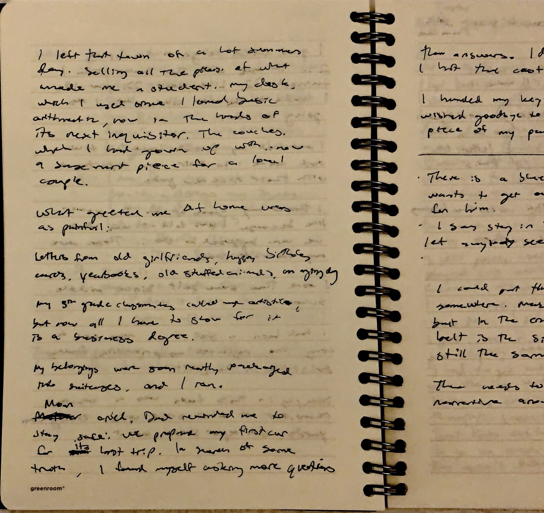 I left that town on a hot summers
day. Selling all the pieces of what
made me a student. my desk,
which I used since I loved basic
arithmetic, now in the hands of
its next inquisitor. The couches,
which I had grown up with, now
a basement piece for a local
couple.
What greeted me at home was
as painful:
Letters from old girlfriends, happy birthday
cards, yearbooks, old stuffed animals, an aging dog
my 5th grade classmates called me artistic,
but now all I have to show for it
is a business degree.
my belongings were soon neatly packaged
into suitcases, and I ran.
Mom
cried. Dad reminded me to
stay safe. we prepare my first car
for its last trip. In search of some
truth, I found myself asking more questions
greenroom
than answers. I d
I hit the coast
I handed my key
wished goodbye to
piece of my pa
There is a
wants to get
for him.
I say stay in
let anybody see
I could put th
somewhere.
but in the en
belt is the s
still the same
There needs to
narrative aro